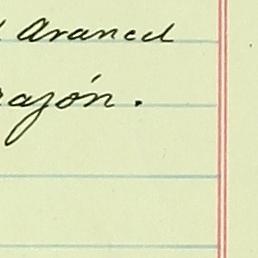 Arancel
razón.